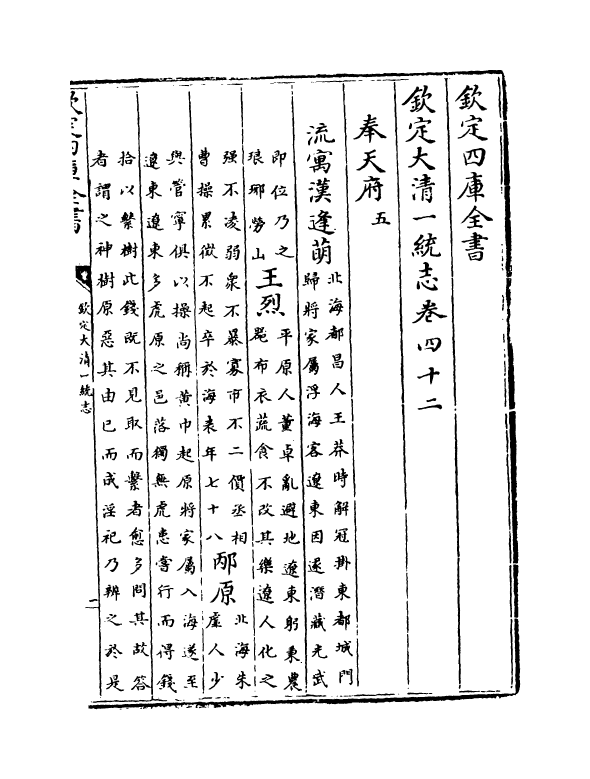 欽定四庫全書
欽定大清一統志卷四十二
奉天府五
流寓漢逢萌北海都昌人王莽時解冠掛東都城門
歸將家屬浮海客遼東因遂潛藏光武
即位乃之
琅琊勞山王烈平原人董卓亂避地遼東躬秉農
器布衣蔬食不改其樂遼人化之
强不凌弱衆不暴寡市不二價丞相
曹操累徵不起卒於海表年七十八邴原北海朱
虛人少
與管寧俱以操尚稱黃巾起原將家屬入海遂至
遼東遼東多虎原之邑落獨無虎患嘗行而得錢
拾以繫樹此錢既不見取而繫者愈多問其故答
者謂之神樹原惡其由已而成淫祀乃辨之於是
欽定四庫全書
欽定大清一統志